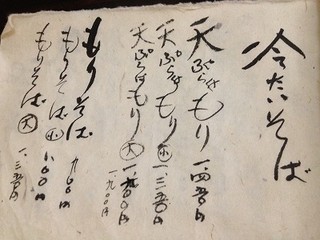 冷たいそば
天ぷらもり 一、四五〇円
天ぷらもり㊥ 一、三五〇円
天ぷらもり㊅ 一、九〇〇円
もりそば 九〇〇円
もりそば㊥ 一、一〇〇円
もりそば㊅ 一、三五〇円